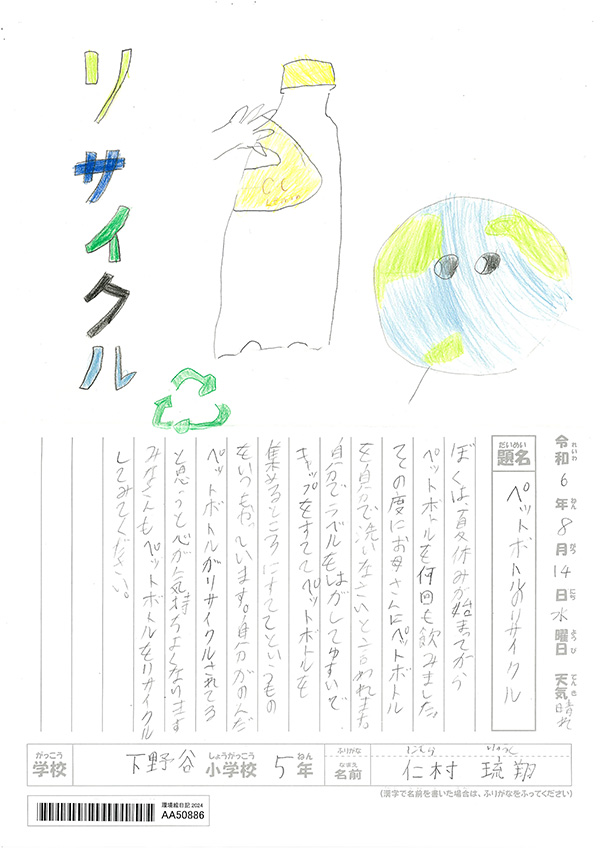 リサイクル
C.C
令和6年8月14日水曜日 天気晴れ
題名 ペットボトルのリサイクル
ぼくは、夏休みが始まってから
ペットボトルを何回も飲みました。
その度にお母さんにペットボトル
を自分で洗いなさいと言われました
自分でラベルをはがしてゆすいで
キャップをすててペットボトルを
集めるところにすててというもの
をいつもやっています。自分がのんだ
ペットボトルがリサイクルされてろ
と思うと心が気持ちよくなります
みなさんもペットボトルをリサイクル
してみてください。
学校 下野谷 小学校 5年 名前 仁村 琉翔
(漢字で名前を書いた場合は、ふりがなをふってください)
環境絵日記2024
AA50886